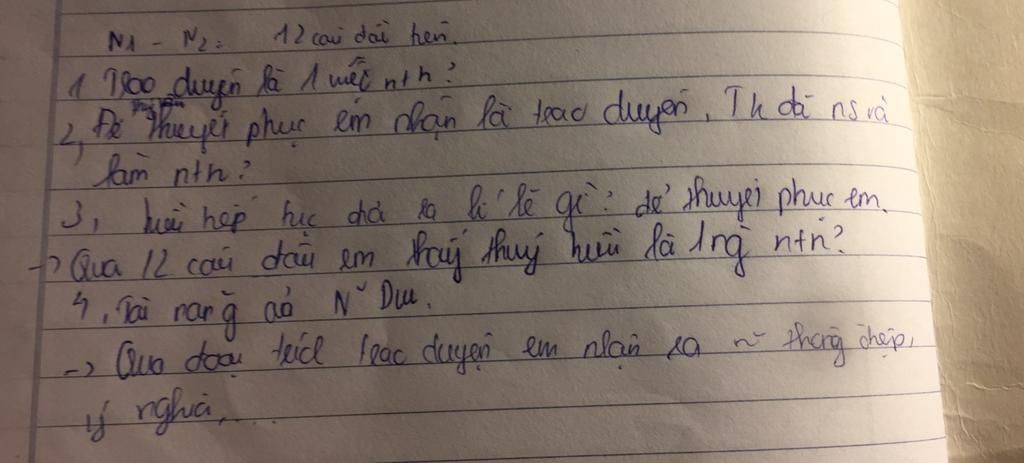 N1 - N2: 12 câu đầu
1 Trao duyên là 1 việc ntn?
2, Để thuyết phục em nhận là trao duyên, TK đã ns và
làm ntn?
3, lí lẽ gì? để thuyết phục em.
-> Qua 12 câu đầu em thấy thuý là 1 ng ntn?
4, Tài năng củả N~ Du.
-> Qua đoạn trích trao duyên em nhận ra n~ thông điệp,
ý nghĩa.....